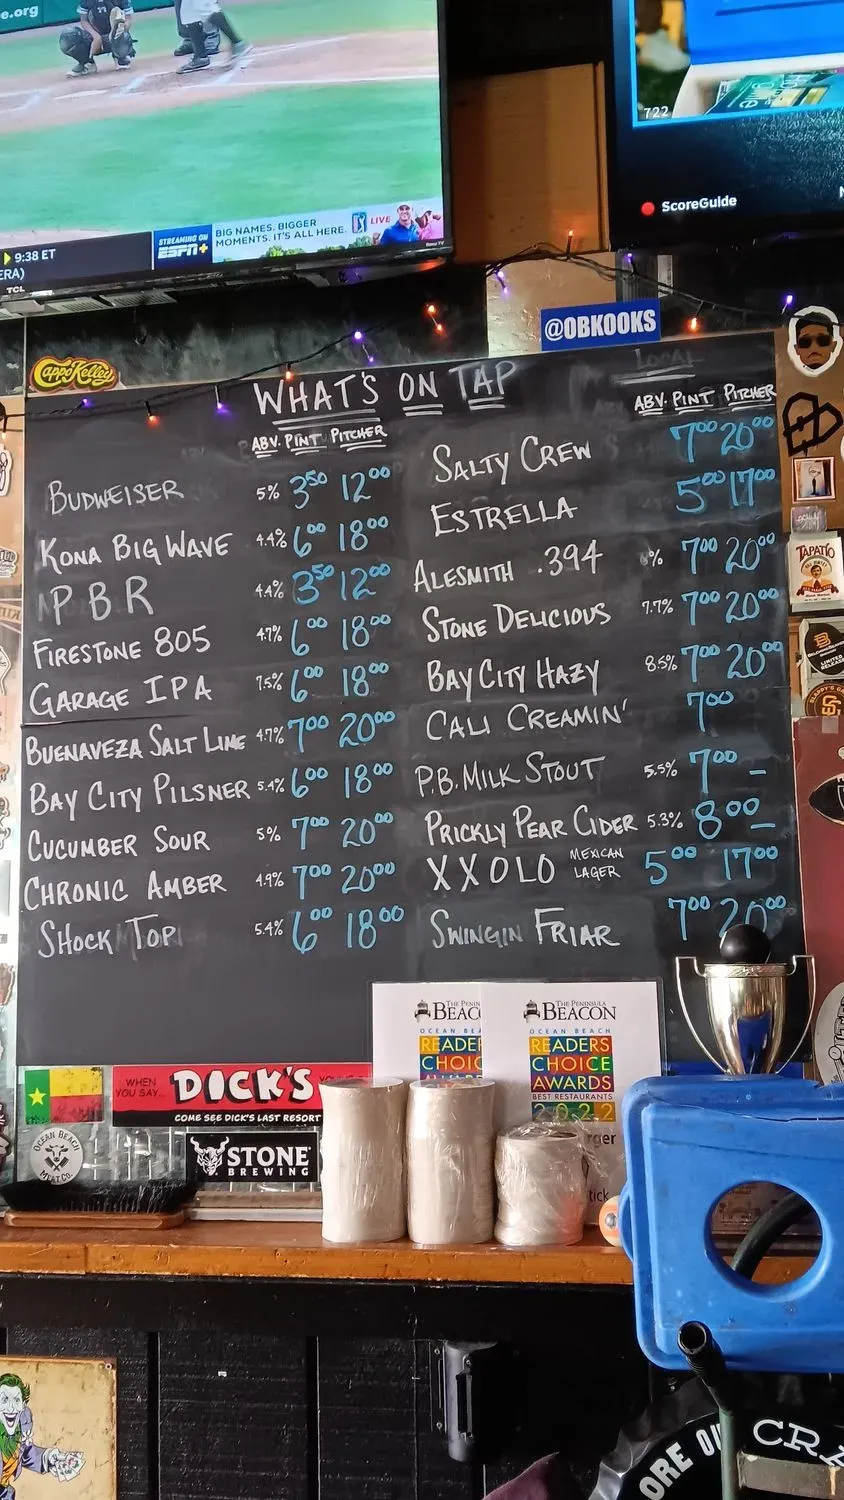 e.org
9:38 ET
ERA)
STREAMING ON
ESPN+
BIG NAMES. BIGGER
MOMENTS. IT'S ALL HERE.
PGA TOUR
LIVE
Roku TV
TCL
722
ScoreGuide
@OBKOOKS
Cappo Kelley
WHAT'S ON TAP
LOCAL
ABV. PINT PITCHER
BUDWEISER 5% 3⁵⁰ 12⁰⁰
KONA BIG WAVE 4.4% 6⁰⁰ 18⁰⁰
PBR 4.4% 3⁵⁰ 12⁰⁰
FIRESTONE 805 4.7% 6⁰⁰ 18⁰⁰
GARAGE IPA 7.5% 6⁰⁰ 18⁰⁰
BUENAVEZA SALT LIME 4.7% 7⁰⁰ 20⁰⁰
BAY CITY PILSNER 5.4% 6⁰⁰ 18⁰⁰
CUCUMBER SOUR 5% 7⁰⁰ 20⁰⁰
CHRONIC AMBER 4.9% 7⁰⁰ 20⁰⁰
SHOCK TOP 5.4% 6⁰⁰ 18⁰⁰
ABV. PINT PITCHER
SALTY CREW 7⁰⁰ 20⁰⁰
ESTRELLA 5⁰⁰ 17⁰⁰
ALESMITH .394 % 7⁰⁰ 20⁰⁰
STONE DELICIOUS 7.7% 7⁰⁰ 20⁰⁰
BAY CITY HAZY 8.5% 7⁰⁰ 20⁰⁰
CALI CREAMIN' 7⁰⁰
P.B. MILK STOUT 5.5% 7⁰⁰ –
PRICKLY PEAR CIDER 5.3% 8⁰⁰ –
XX OLO MEXICAN LAGER 5⁰⁰ 17⁰⁰
SWINGIN FRIAR 7⁰⁰ 20⁰⁰
TAPATÍO
LIMITED RELEASE
THE PENINSULA
BEAC
OCEAN BEA
READE
CHOIC
THE PENINSULA
BEACON
OCEAN BEACH
READERS
CHOICE
AWARDS
BEST RESTAURANTS
2022
rger
tick
WHEN YOU SAY...
DICK'S
COME SEE DICK'S LAST RESORT
STONE
BREWING
OCEAN BEACH
MEAT CO.
ORE OU
CRA